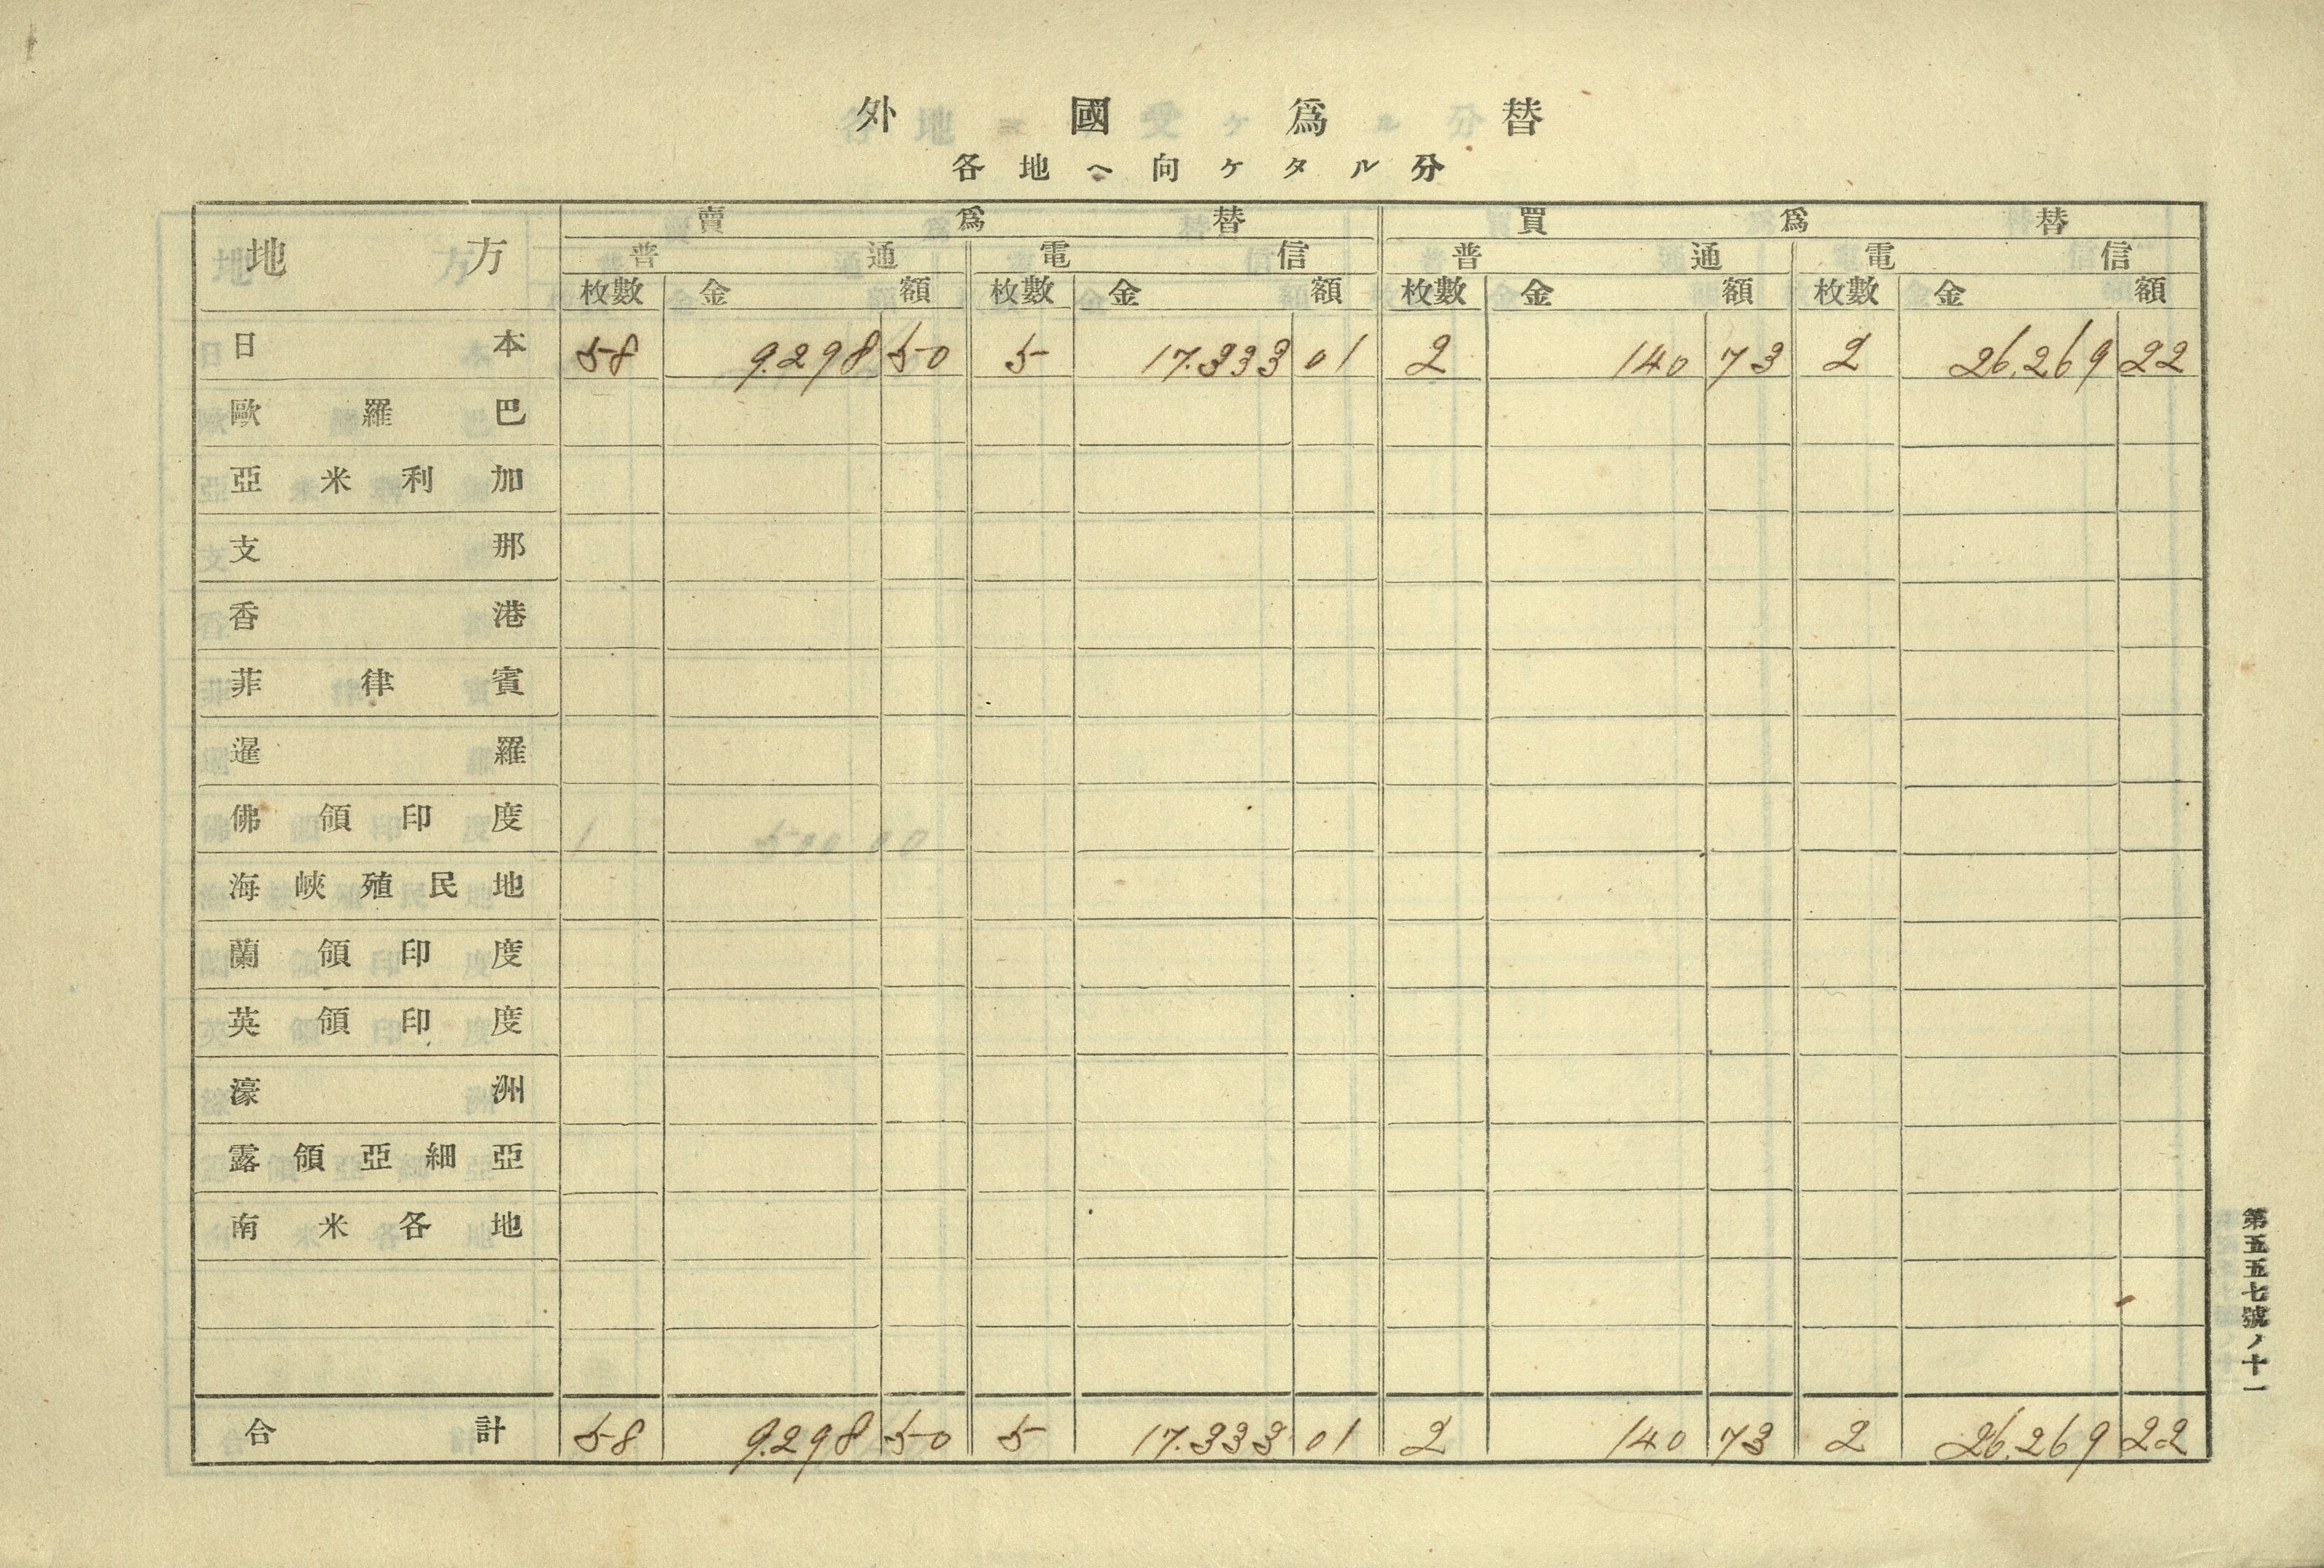 外國爲替
各地ヘ向ケタル分
地方 賣爲替 買爲替
普通 電信 普通 電信
枚數 金額 枚數 金額 枚數 金額 枚數 金額
日本 58 9.298 50 5 17.333 01 2 140 73 2 26.269 22
歐羅巴
亞米利加
支那
香港
菲律賓
暹羅
佛領印度
海峽殖民地
蘭領印度
英領印度
濠洲
露領亞細亞
南米各地
合計 58 9.298 50 5 17.333 01 2 140 73 2 26.269 22
第五五七號ノ十一